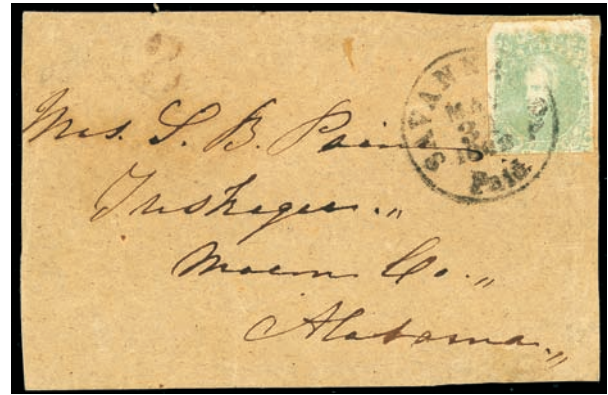 SAVANN Ga.
Paid
Mrs. S. B. Paine
Tuskegee.,,
Macon Co.,,
Alabama,,